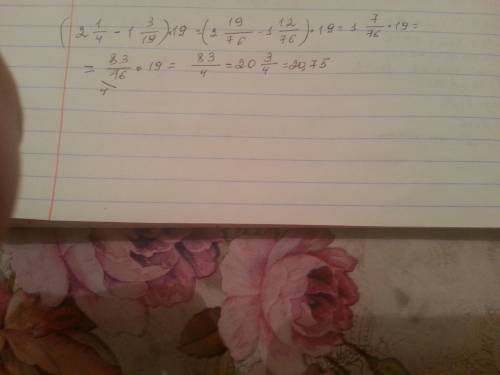 (2 1/4 - 1 3/19) · 19 = (2 19/76 - 1 12/76) · 19 = 1 7/76 · 19 =
= 83/76 · 19 = 83/4 = 20 3/4 = 20,75
4